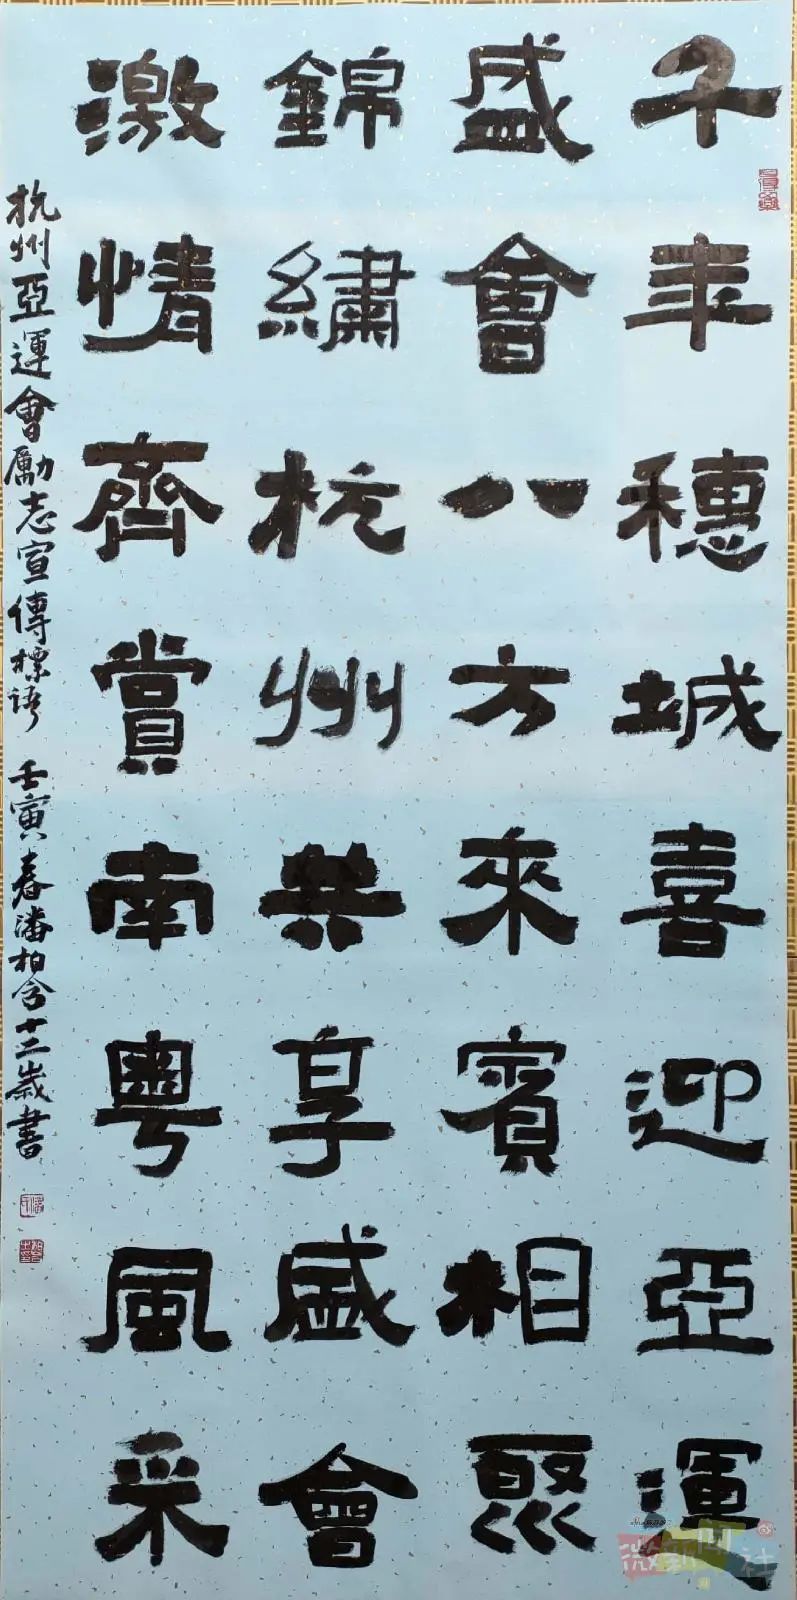 千年穗城喜迎亞運
盛會八方來賓相聚
錦繡杭州共享盛會
激情齊賞南粵風采
杭州亞運會勵志宣傳標語 壬寅春潘柏含十二歲書
微新聞社